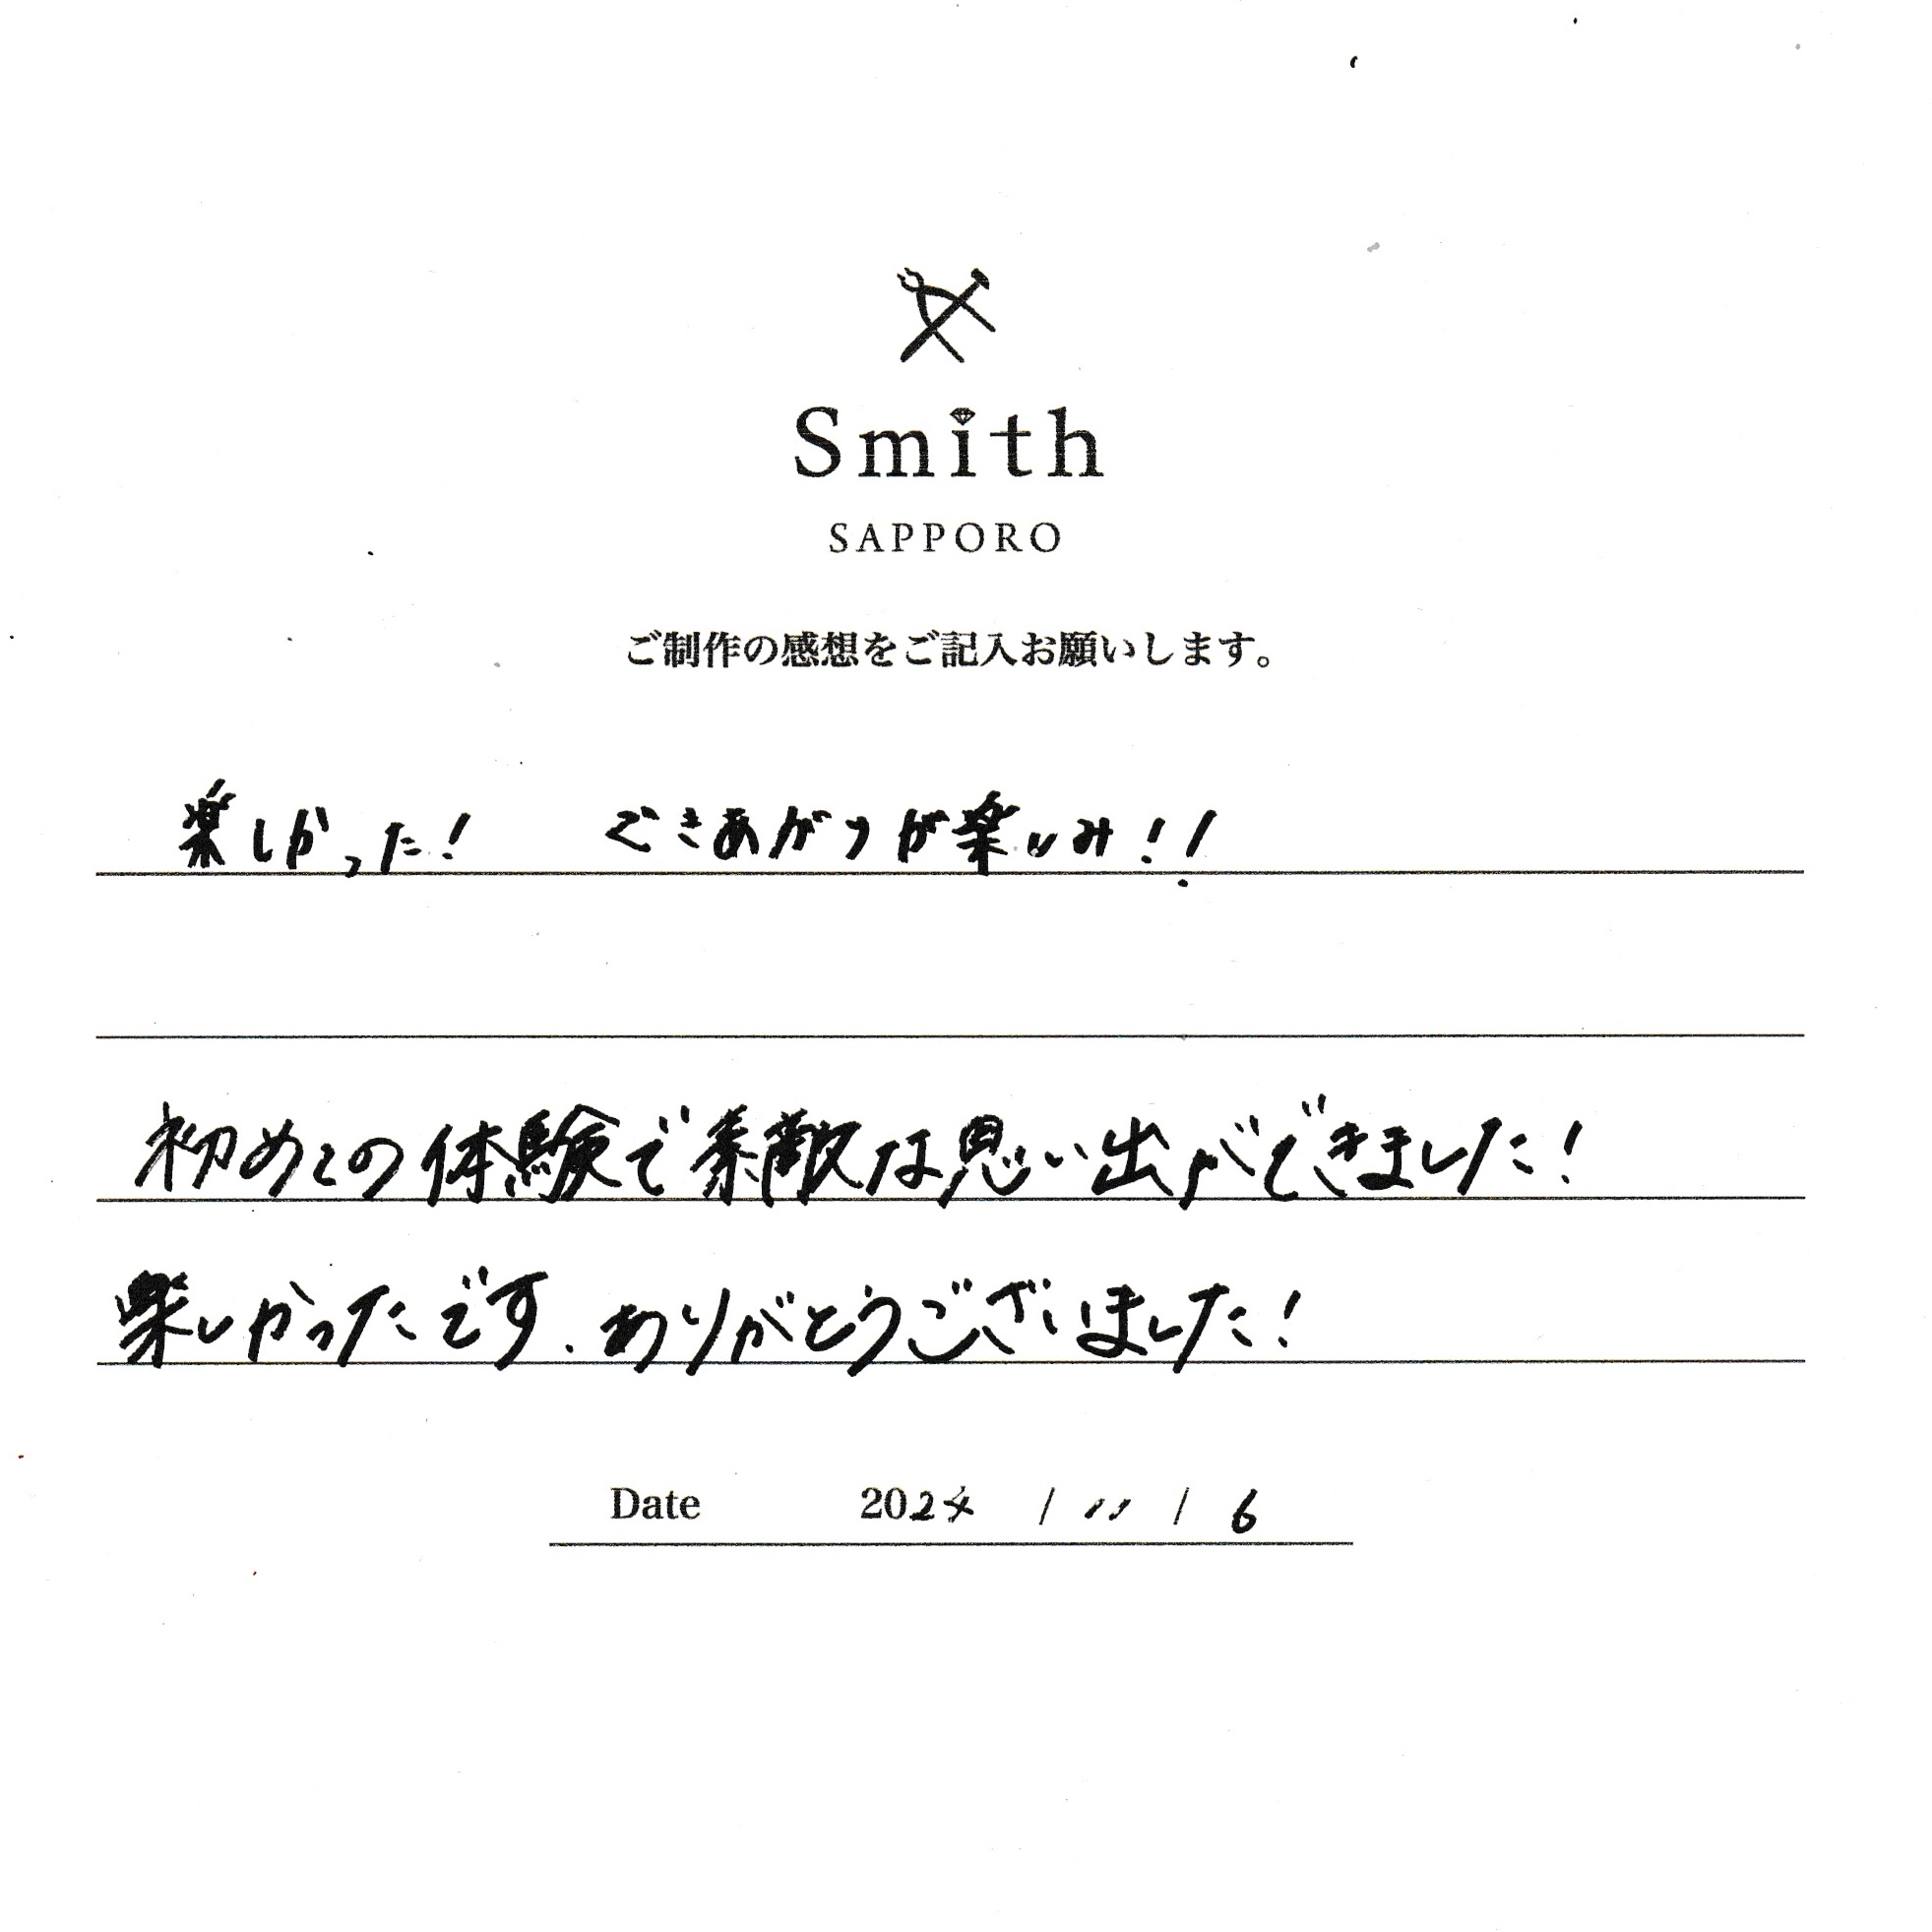 Smith
SAPPORO
ご制作の感想をご記入お願いします。
楽しかった！ できあがりが楽しみ！！
初めての体験で素敵な思い出ができました！
楽しかったです．ありがとうございました！
Date 2024 / 11 / 6